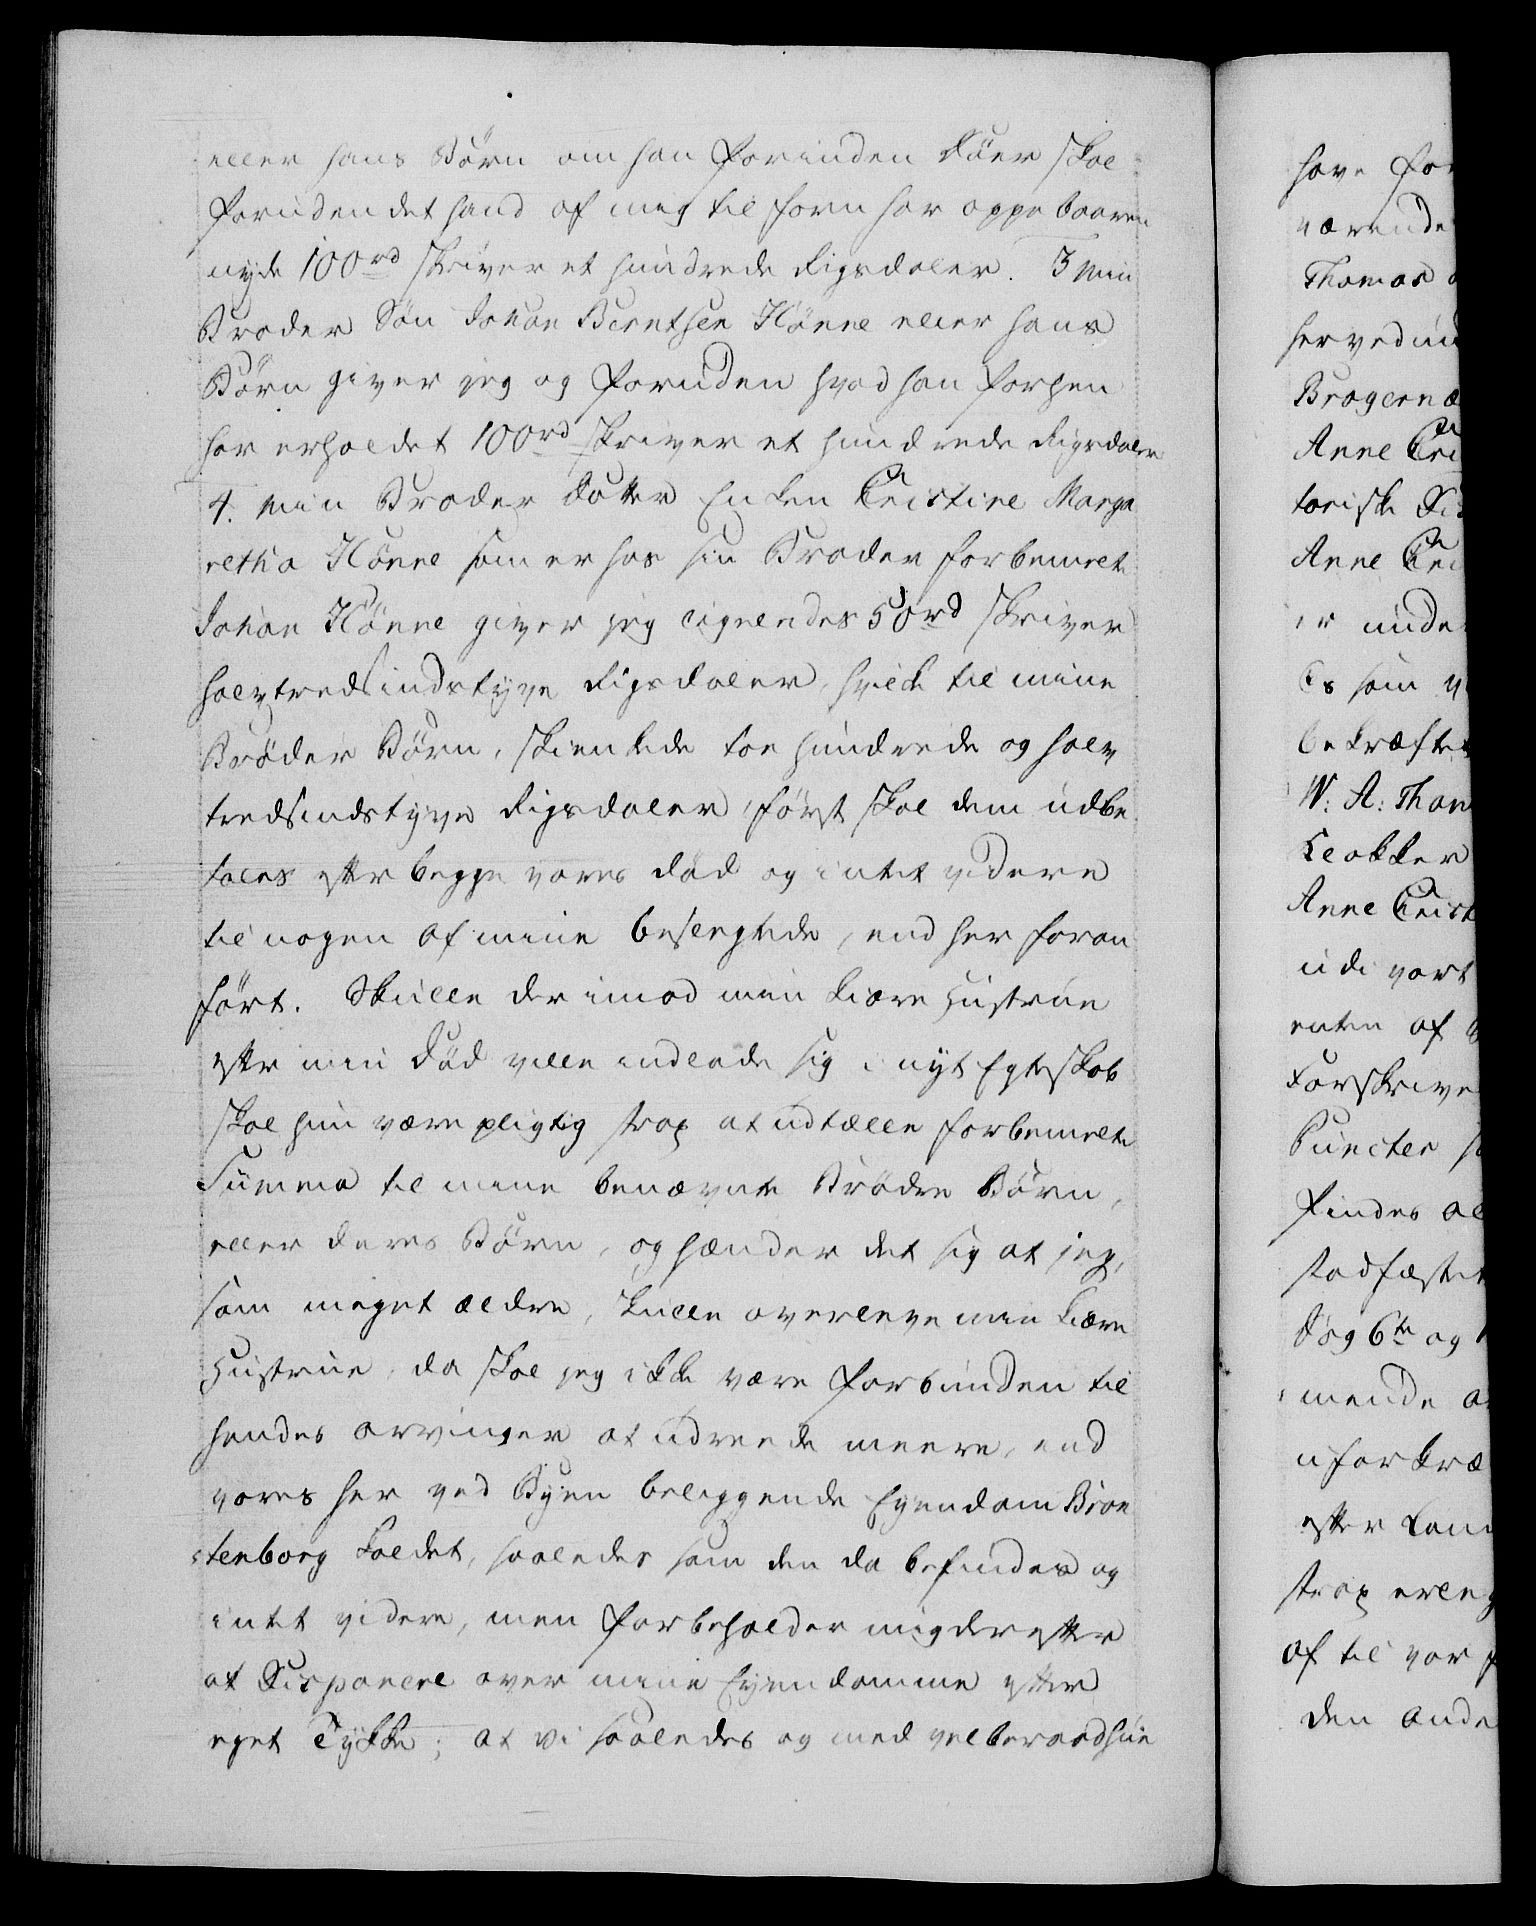 eller hans Børn om han forinden Døer skal
foruden det hand af mig til forn har oppebaaren
nyde 100rd skriver et hundrede Rigsdaler. 3 Min
Broder Søn Johan Berntsen Hønne eller hans
Børn giver jeg og foruden hvad han forhen
har erholdet 100rd skriver et hundrede Rigsdaler
4. Min Broder Datter Enken Christine Marga
retha Hønne som er hos sin Broder forbemelte
Johan Hønne giver jeg ligeledes 50rd skriver
halvtredsindstyve Rigsdaler, hvilke til mine
Brøder Børn, skienkede toe hundrede og halv
tredsindstyve Rigsdaler, først skal dem udbe
tales efter begge vores død og intet videre
til nogen af mine beslegtede, end her foran
ført. Skulle derimod min kiære Hustrue
efter min Død ville indlade sig i nyt Egteskab
skal hun være pligtig strax at udtælle forbemelte
Summa til mine benævnte Brødre Børn,
eller deres Børn, og hænder det sig at jeg,
som meget ældre, skulle overleve min kære
Hustrue, da skal jeg ikke være forbunden til
hendes arvinger at udreede meere, end
vores her ved Byen beliggende Eyendom Bion
stenborg kaldet, saaledes som den da befindes og
intet videre, men forbeholder mig derefter
at Disponere over mine Eyendomme efter
eget Tykke; at vi saaledes og med velberaadhue
have for
værende
Thomas
herved
Bragernæ
Anne Chri
toriske
Anne Chri
er unde
es som
bekræfte
W: A: Tham
Klokker
Anne Christ
udi vort
enten af
Forskrive
Puncter
findes al
stadfæstet
Dag 6te og
mende
uforkræ
efter Lan
strax erleg
af til vor
den ande